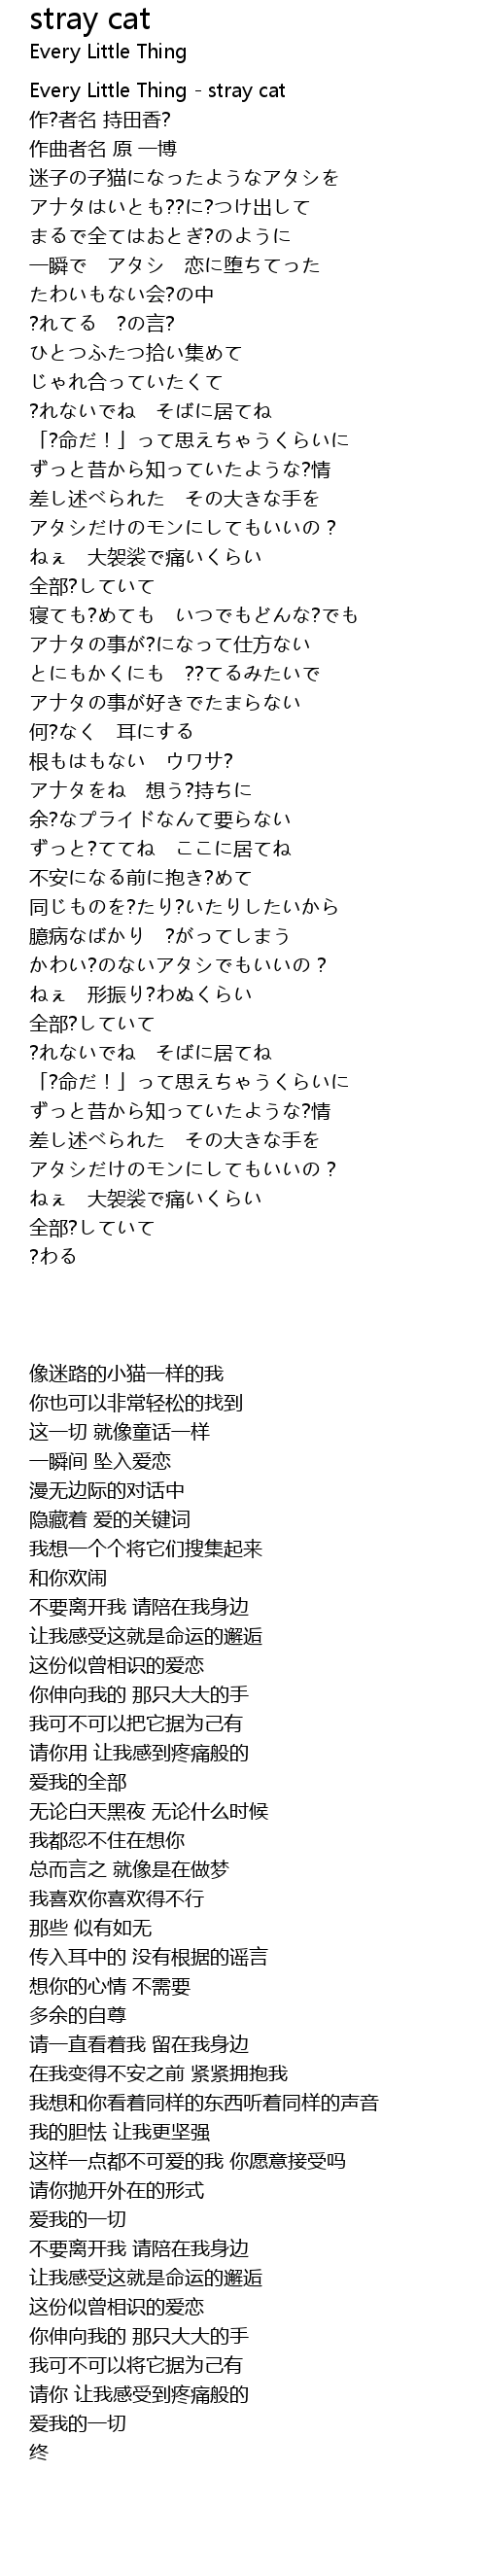 stray cat
Every Little Thing
Every Little Thing - stray cat
作?者名 持田香?
作曲者名 原 一博
迷子の子猫になったようなアタシを
アナタはいとも??に?つけ出して
まるで全てはおとぎ?のように
一瞬で　アタシ　恋に堕ちてった
たわいもない会?の中
?れてる　?の言?
ひとつふたつ拾い集めて
じゃれ合っていたくて
?れないでね　そばに居てね
「?命だ！」って思えちゃうくらいに
ずっと昔から知っていたような?情
差し述べられた　その大きな手を
アタシだけのモンにしてもいいの？
ねぇ　大袈裟で痛いくらい
全部?していて
寝ても?めても　いつでもどんな?でも
アナタの事が?になって仕方ない
とにもかくにも　??てるみたいで
アナタの事が好きでたまらない
何?なく　耳にする
根もはもない　ウワサ?
アナタをね　想う?持ちに
余?なプライドなんて要らない
ずっと?ててね　ここに居てね
不安になる前に抱き?めて
同じものを?たり?いたりしたいから
臆病なばかり　?がってしまう
かわい?のないアタシでもいいの？
ねぇ　形振り?わぬくらい
全部?していて
?れないでね　そばに居てね
「?命だ！」って思えちゃうくらいに
ずっと昔から知っていたような?情
差し述べられた　その大きな手を
アタシだけのモンにしてもいいの？
ねぇ　大袈裟で痛いくらい
全部?していて
?わる
像迷路的小猫一样的我
你也可以非常轻松的找到
这一切 就像童话一样
一瞬间 坠入爱恋
漫无边际的对话中
隐藏着 爱的关键词
我想一个个将它们搜集起来
和你欢闹
不要离开我 请陪在我身边
让我感受这就是命运的邂逅
这份似曾相识的爱恋
你伸向我的 那只大大的手
我可不可以把它据为己有
请你用 让我感到疼痛般的
爱我的全部
无论白天黑夜 无论什么时候
我都忍不住在想你
总而言之 就像是在做梦
我喜欢你喜欢得不行
那些 似有如无
传入耳中的 没有根据的谣言
想你的心情 不需要
多余的自尊
请一直看着我 留在我身边
在我变得不安之前 紧紧拥抱我
我想和你看着同样的东西听着同样的声音
我的胆怯 让我更坚强
这样一点都不可爱的我 你愿意接受吗
请你抛开外在的形式
爱我的一切
不要离开我 请陪在我身边
让我感受这就是命运的邂逅
这份似曾相识的爱恋
你伸向我的 那只大大的手
我可不可以将它据为己有
请你 让我感受到疼痛般的
爱我的一切
终